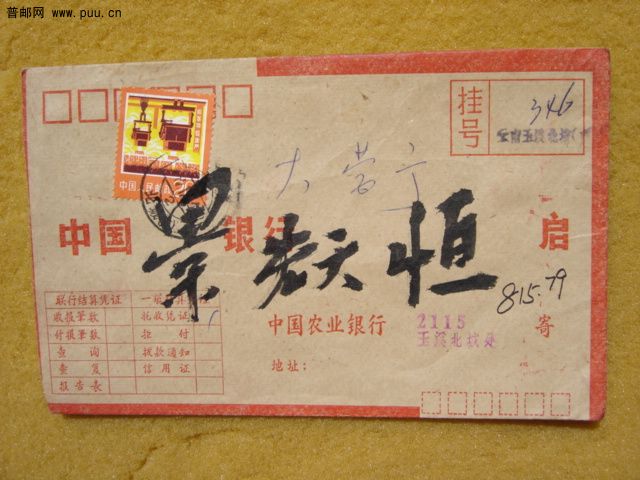 普邮网 www.puu.cn
挂号
346
云南玉溪北城
中国人民邮政
20
大营
中国 银行 启
恒
815.79
联行结算凭证
收报笔数 托收凭证
付报笔数 拒付
查询 拨款通知
查复 信用证
报告表
中国农业银行 2115 寄
玉溪北城办
地址：